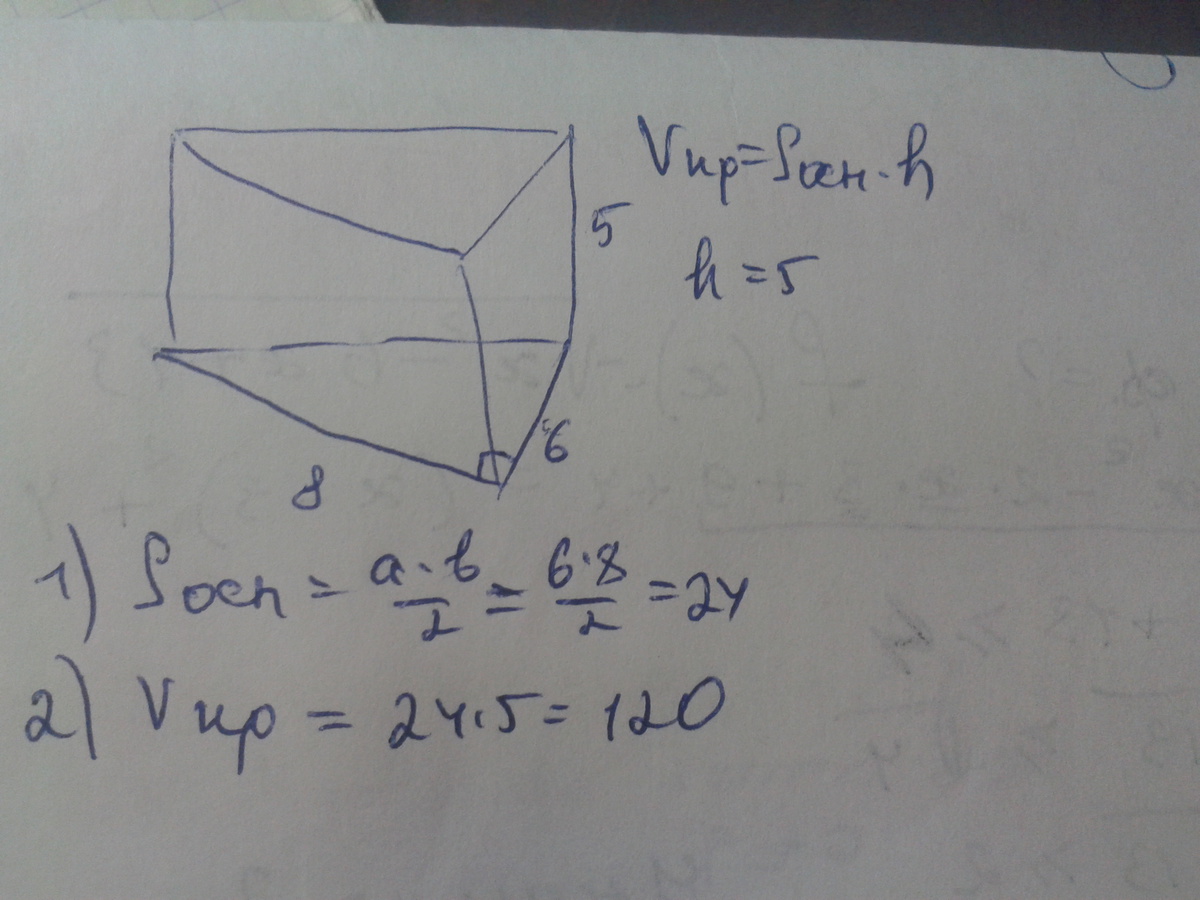 Vпр=Sосн·h
5
h=5
6
8
1) Sосн = a·b/2 = 6·8/2 = 24
2) Vпр = 24·5 = 120